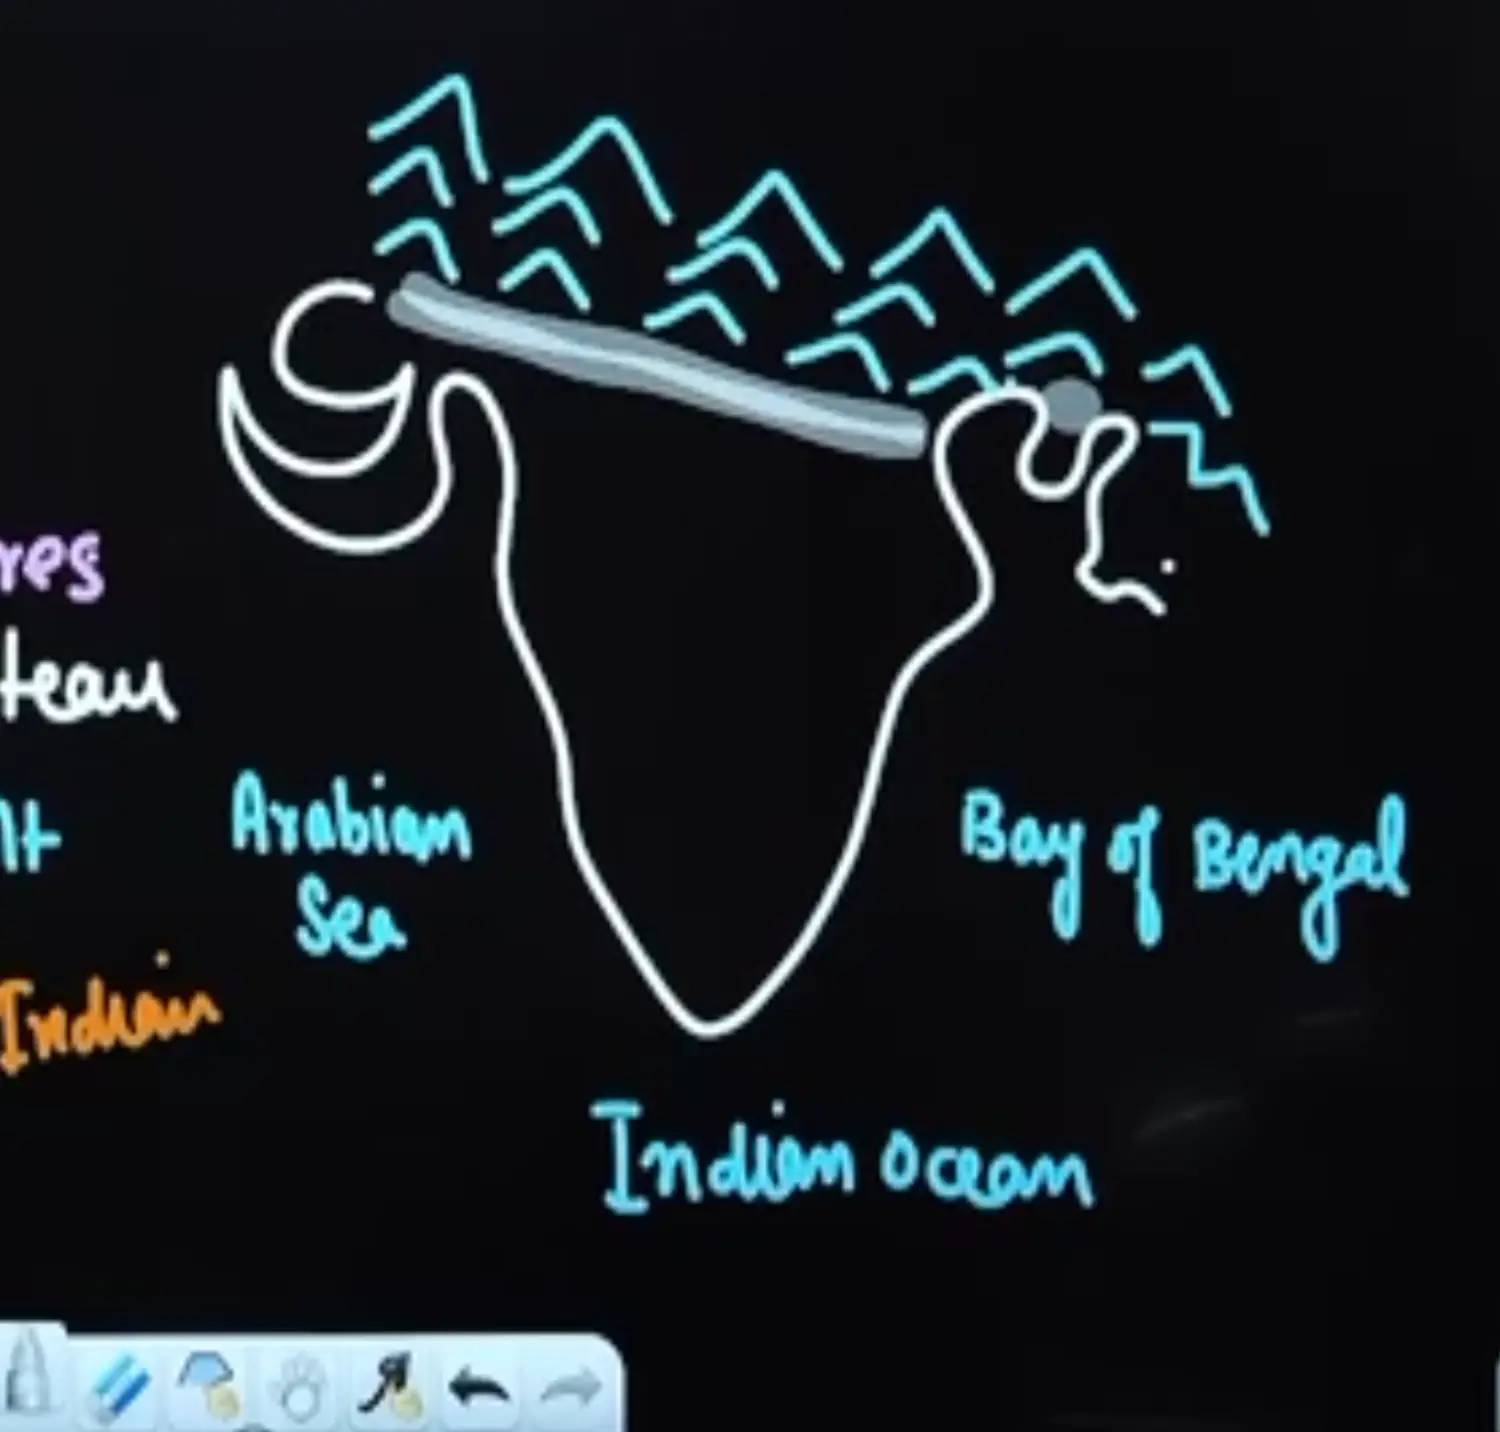 res
teau
Arabian
Sea
Bay of Bengal
Indian
Indian Ocean